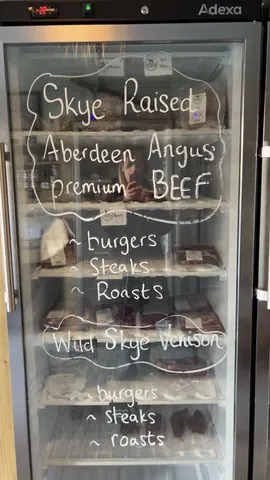 Adexa
Skye Raised
Aberdeen Angus
premium BEEF
~ burgers
~ Steaks
~ Roasts
Wild Skye Venison
~ burgers
~ steaks
~ roasts